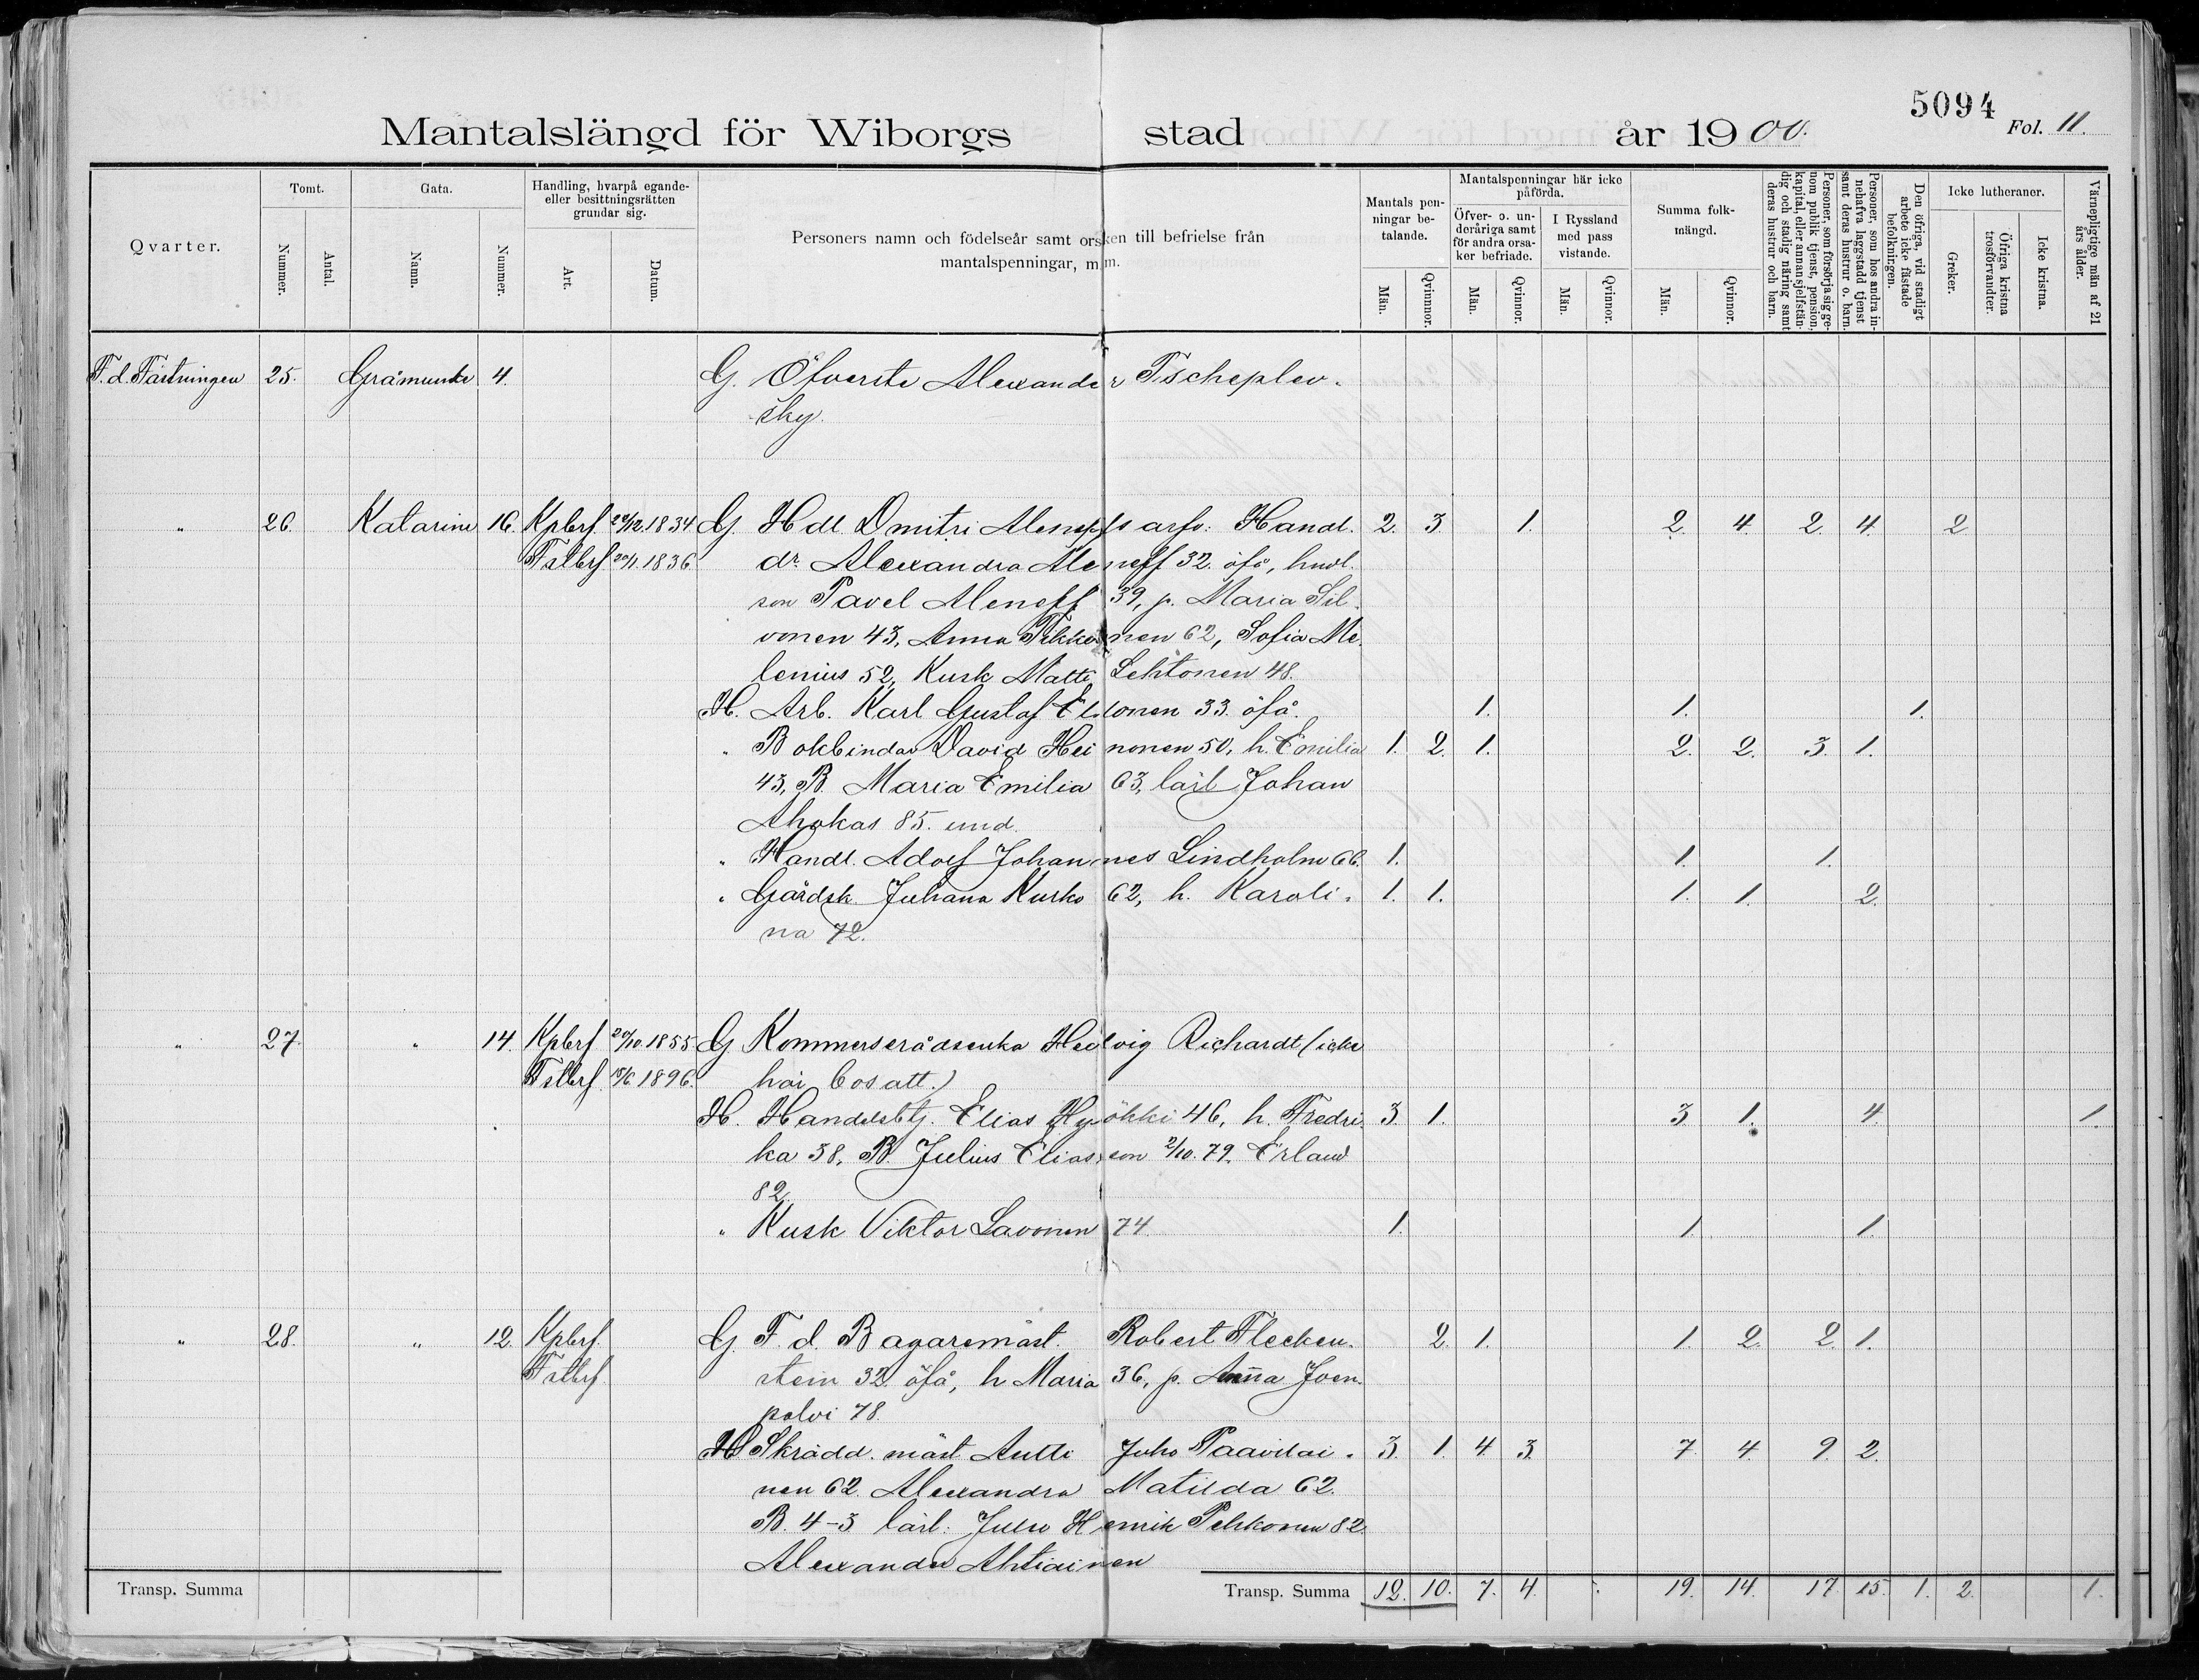 5094
Mantalslängd för Wiborgs stad år 1900. Fol. 11.
Qvarter.
Tomt.
Nummer.
Antal.
Gata.
Namn.
Nummer.
Handling, hvarpå egande-
eller besittningsrätten
grundar sig.
Art.
Datum.
Personers namn och födelseår samt orsken till befrielse från
mantalspenningar, m m.
Mantals pen-
ningar be-
talande.
Män.
Qvinnor.
Mantalspenningar här icke
påförda.
Öfver- o. un-
deråriga samt
för andra orsa-
ker befriade.
Män.
Qvinnor.
I Ryssland
med pass
vistande.
Män.
Qvinnor.
Summa folk-
mängd.
Män.
Qvinnor.
Personer, som försörja sig ge-
nom publik tjenst, pension,
kapital, eller annan sjelfstän-
dig och stadig näring samt
deras hustrur och barn.
Personer, som hos andra in-
nehafva laggstadd tjenst
samt deras hustrur o. barn.
Den öfriga, vid stadigt
arbete icke fästade
befolkningen.
Icke lutheraner.
Greker.
Öfriga kristna
trosförvandter.
Icke kristna.
Värnepligtige män af 21
års ålder.
F. d. Fästningen 25. Gråmunke 4. G. Öfverste Alexander Tscheplev-
sky.
" 26. Katarine 16. Kpbrf 1834 G. Hdl. Dmitri Aleneffs arfv: Handl. 2. 3. 1. 2. 4. 2. 4. 2.
Fstbrf 1836 dr Alexandra Aleneff 32. öfå, handl.
son Pavel Aleneff 39, p. Maria Sil-
vonen 43, Anna Tekkonen 62, Sofia Me-
lenius 52, Kusk Matti Lehtonen 48.
H. Arb. Karl Gustaf Elonen 33. öfå. 1. 1. 1.
" Bokbindar David Heinonen 50, h. Emilia 1. 2. 1. 2. 2. 3. 1.
43, B. Maria Emilia 63, lärl Johan
Ahokas 85. und.
" Handl. Adolf Johannes Lindholm 66. 1. 1. 1.
" Gårdsk. Juhana Kurko 62, h. Karoli- 1. 1. 1. 1. 2.
na 72.
" 27. " 14. Kpbrf 20/10. 1855 G. Kommerserådsenka Hedvig Richardt (icke
Fstbrf 15/6 1896. här bosatt.)
H. Handelsbtj. Elias Hyökki 46, h. Fredri- 3. 1. 3. 1. 4. 1.
ka 38, B. Julius Eliasson 2/10. 79. Erland
82.
" Kusk Viktor Lavonen 74. 1. 1. 1.
" 28. " 12. Kpbrf. G. F. d. Bagaremäst. Robert Flecken- 2. 1. 1. 2. 2. 1.
Fstbrf. stein 32. öfå, h. Maria 36, p. Anna Joen-
polvi 78.
H. Skrädd. mäst Antti Juho Paavilai- 3. 1. 4 3. 7. 4. 9. 2.
nen 62. Alexandra Matilda 62.
B. 4-3 lärl: Juho Henrik Pekkonen 82.
Alexander Ahtiainen
Transp. Summa Transp. Summa 12. 10. 7. 4. 19. 14. 17. 15. 1. 2. 1.